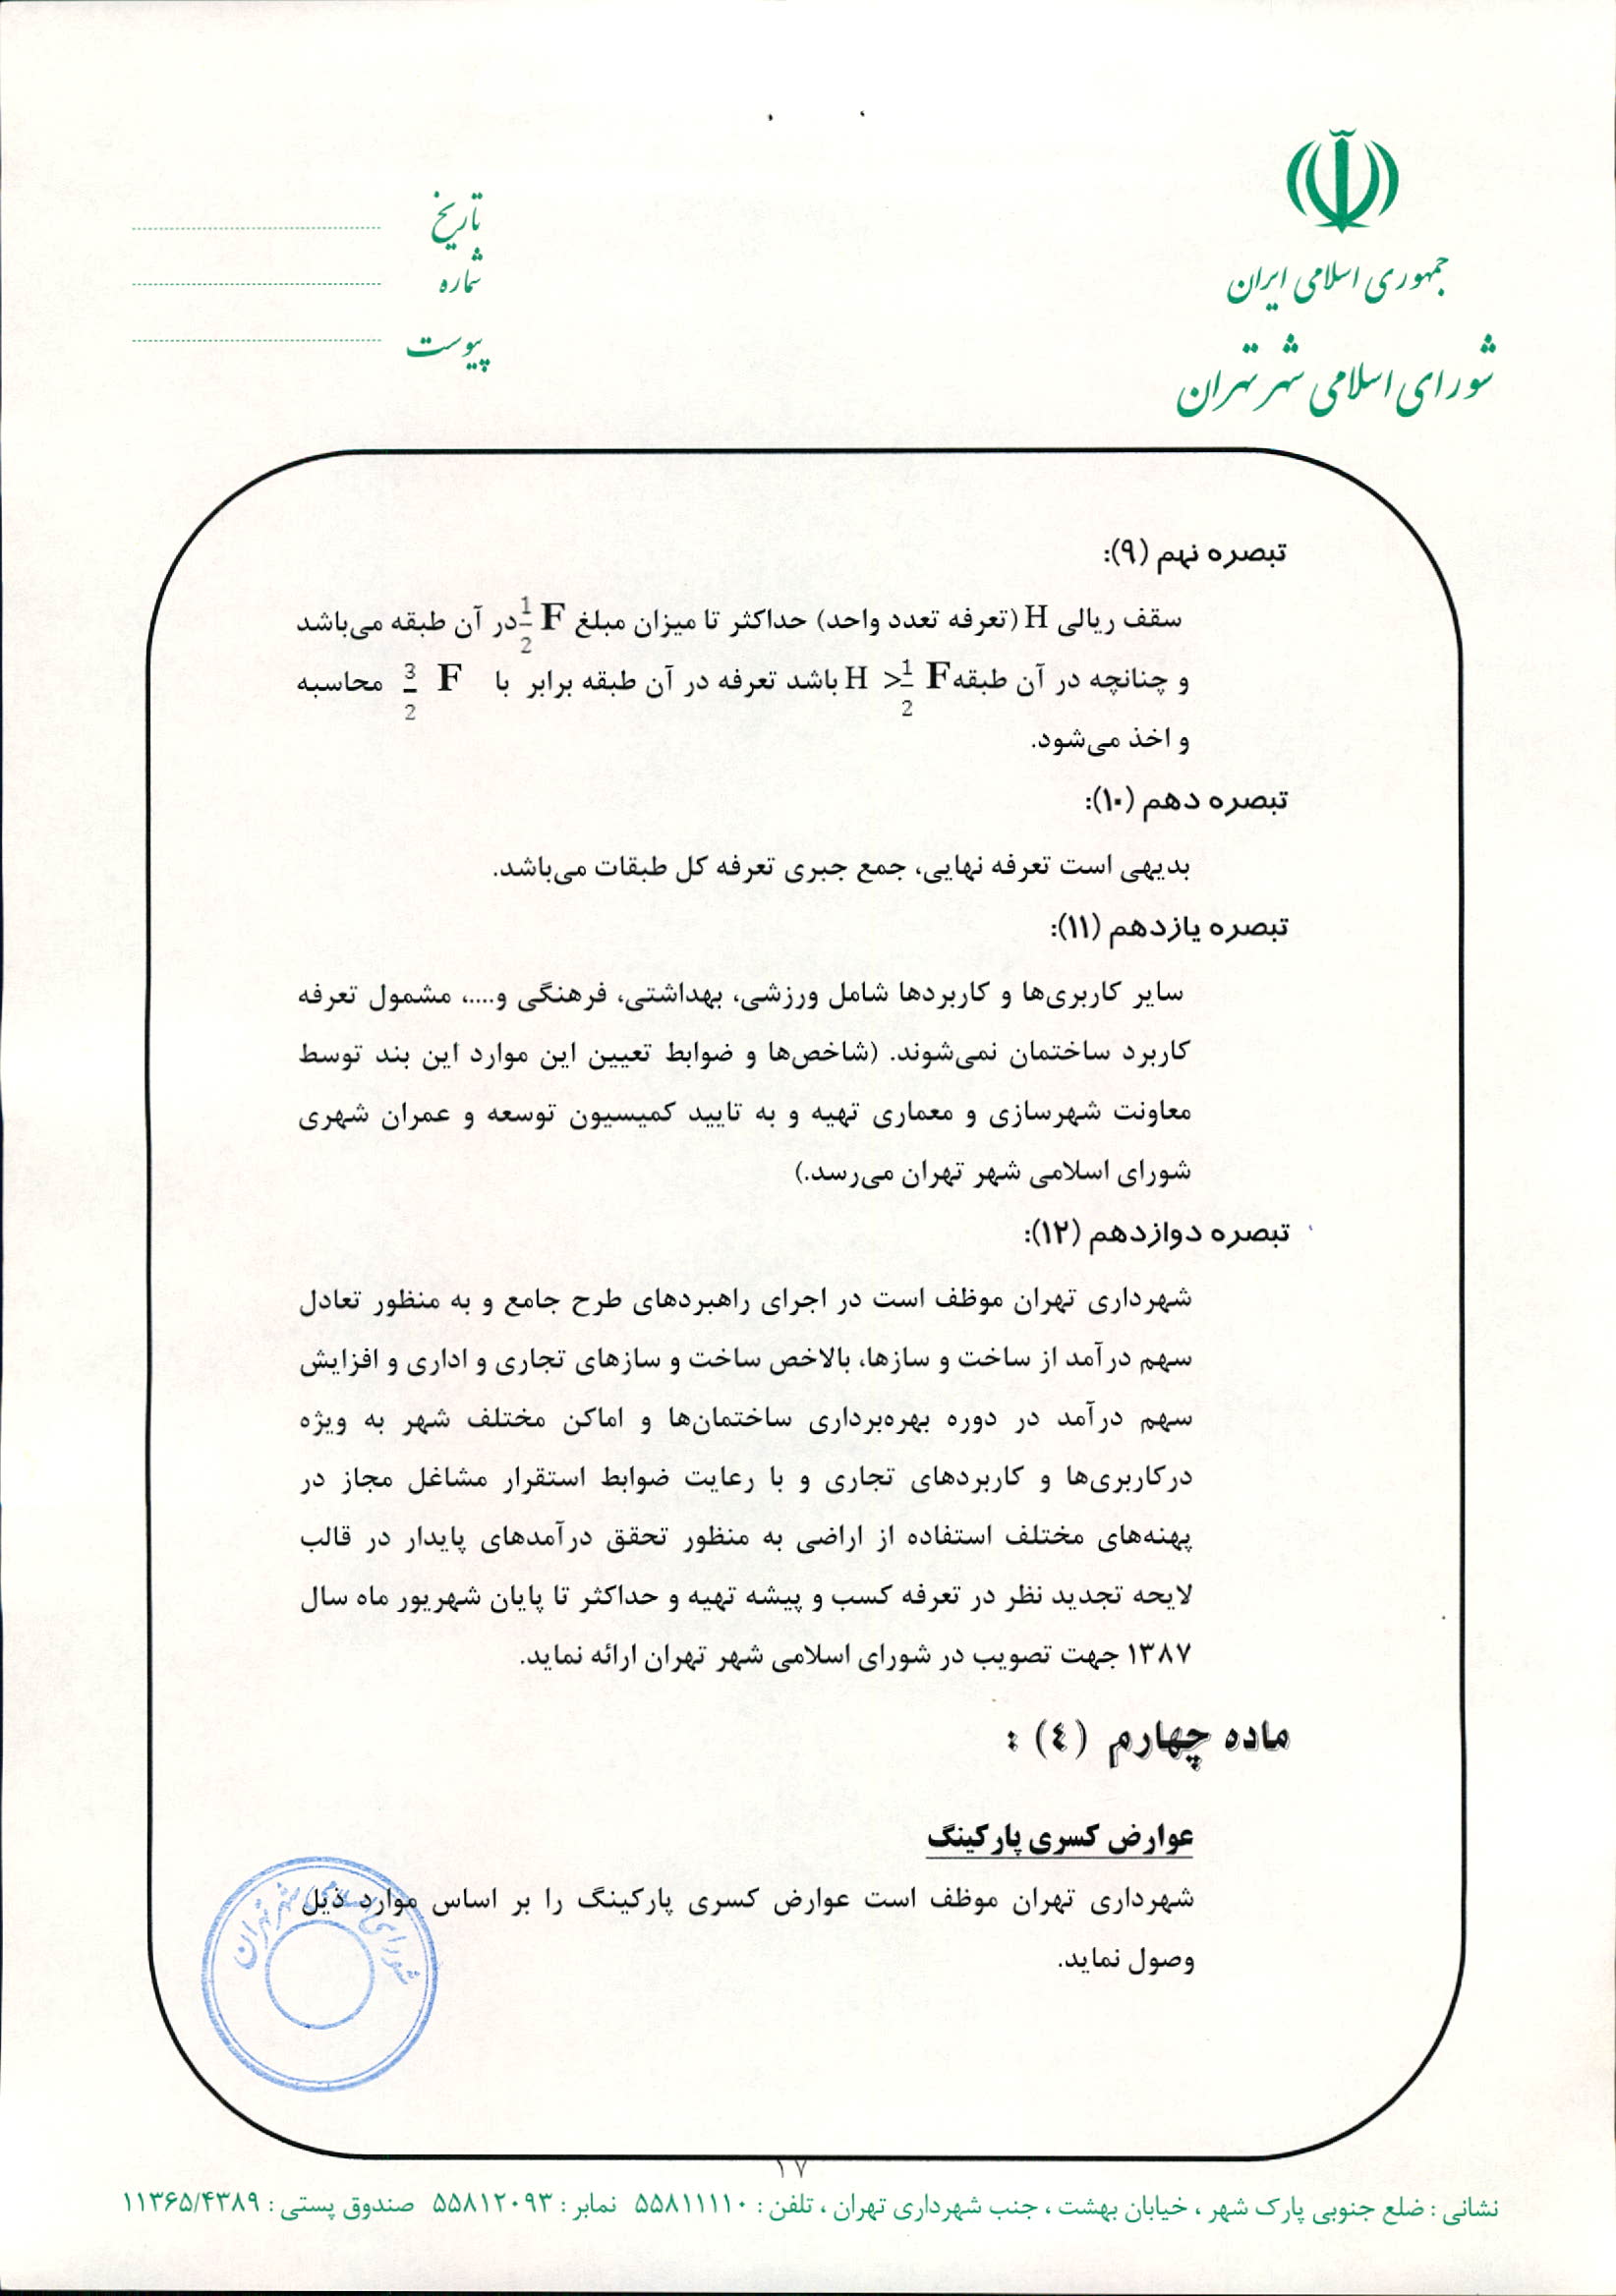 جمهوری اسلامی ایران
شورای اسلامی شهر تهران
تاریخ
شماره
پیوست
تبصره نهم (۹):
سقف ریالی H (تعرفه تعدد واحد) حداکثر تا میزان مبلغ F 1/2 در آن طبقه می‌باشد
و چنانچه در آن طبقه F 1/2 < H باشد تعرفه در آن طبقه برابر با F 3/2 محاسبه
و اخذ می‌شود.
تبصره دهم (۱۰):
بدیهی است تعرفه نهایی، جمع جبری تعرفه کل طبقات می‌باشد.
تبصره یازدهم (۱۱):
سایر کاربری‌ها و کاربردها شامل ورزشی، بهداشتی، فرهنگی و....، مشمول تعرفه
کاربرد ساختمان نمی‌شوند. (شاخص‌ها و ضوابط تعیین این موارد این بند توسط
معاونت شهرسازی و معماری تهیه و به تایید کمیسیون توسعه و عمران شهری
شورای اسلامی شهر تهران می‌رسد.)
تبصره دوازدهم (۱۲):
شهرداری تهران موظف است در اجرای راهبردهای طرح جامع و به منظور تعادل
سهم درآمد از ساخت و سازها، بالاخص ساخت و سازهای تجاری و اداری و افزایش
سهم درآمد در دوره بهره‌برداری ساختمان‌ها و اماکن مختلف شهر به ویژه
درکاربری‌ها و کاربردهای تجاری و با رعایت ضوابط استقرار مشاغل مجاز در
پهنه‌های مختلف استفاده از اراضی به منظور تحقق درآمدهای پایدار در قالب
لایحه تجدید نظر در تعرفه کسب و پیشه تهیه و حداکثر تا پایان شهریور ماه سال
۱۳۸۷ جهت تصویب در شورای اسلامی شهر تهران ارائه نماید.
ماده چهارم (٤) :
عوارض کسری پارکینگ
شهرداری تهران موظف است عوارض کسری پارکینگ را بر اساس موارد ذیل
وصول نماید.
شورای اسلامی شهر تهران
۱۷
نشانی : ضلع جنوبی پارک شهر ، خیابان بهشت ، جنب شهرداری تهران ، تلفن : ۵۵۸۱۱۱۱۰ نمابر : ۵۵۸۱۲۰۹۳ صندوق پستی : ۱۱۳۶۵/۴۳۸۹